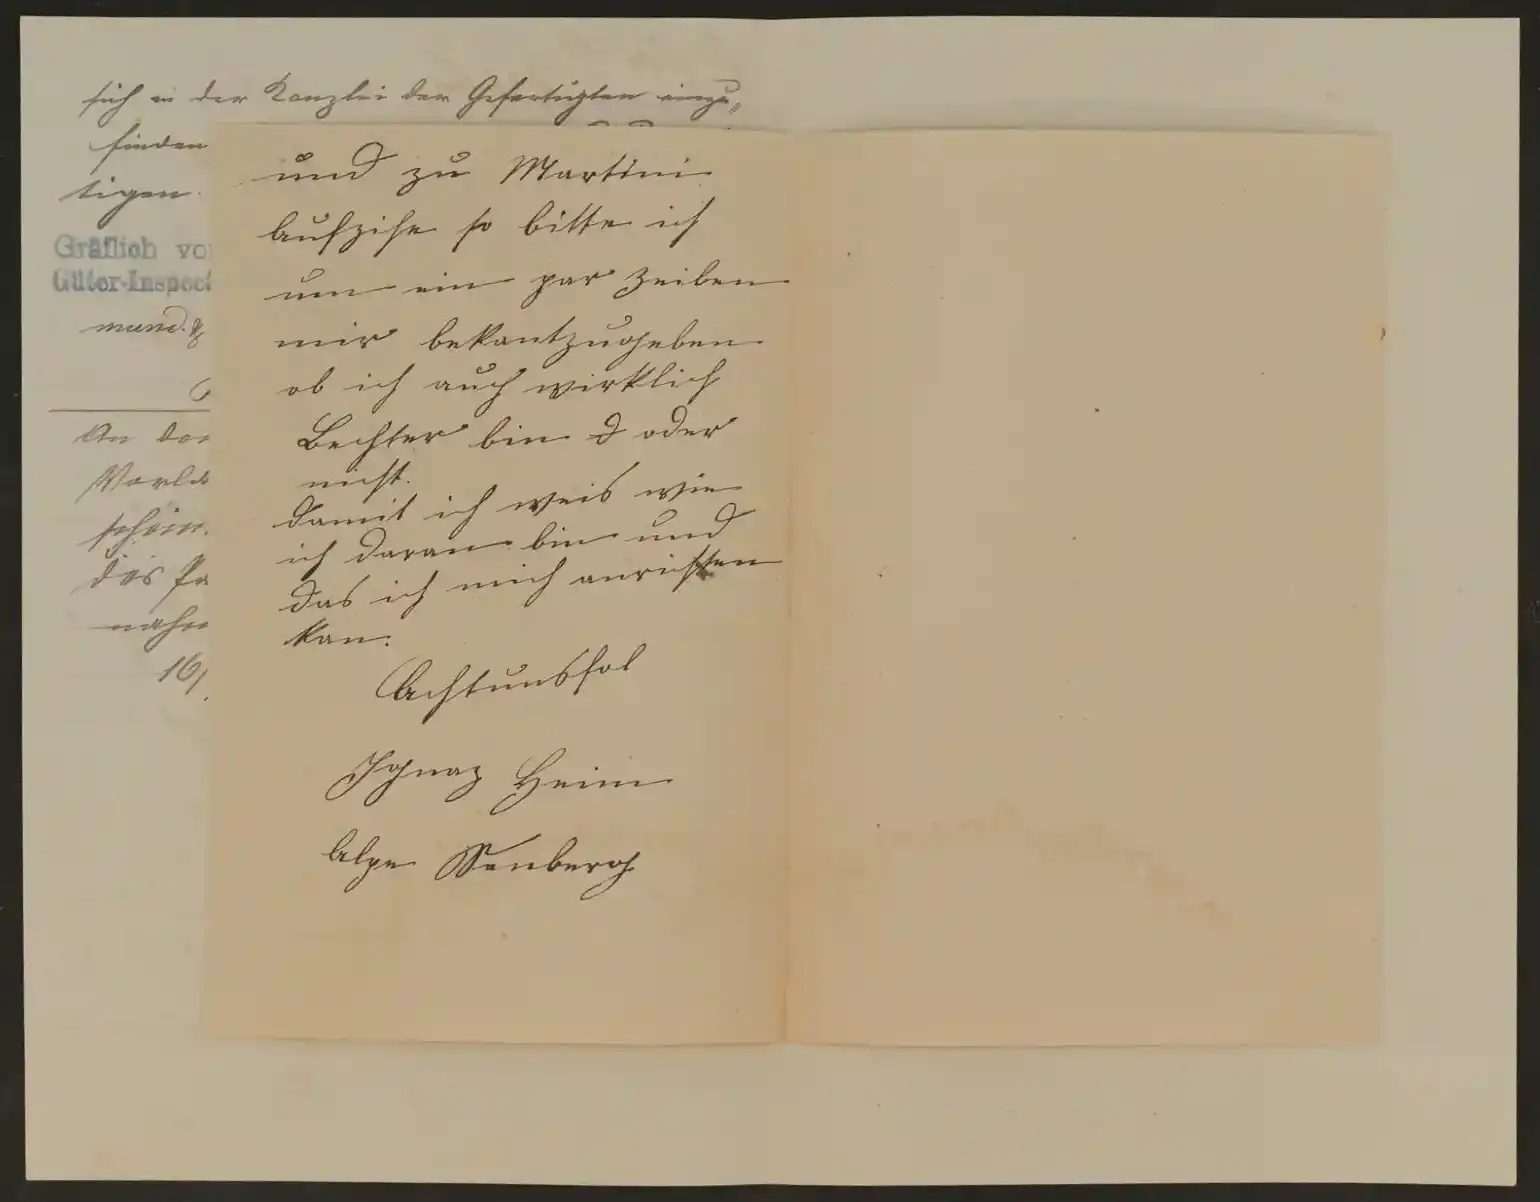 sich in der Kanzlei der Gefertigten einzu„
finden
tigen
Gräflich vo
Güter-Inspect
mund.
An den
schein.
das Pa
nahm
16/
und zu Martini
aufzihe so bitte ich
um ein par Zeilen
mir bekantzugeben
ob ich auch wirklich
Bechter bin oder
nicht.
damit ich weis wie
ich daran bin und
das ich mich anrichten
kan.
Achtunsfol
Ignaz Heim
Alpe Senberg